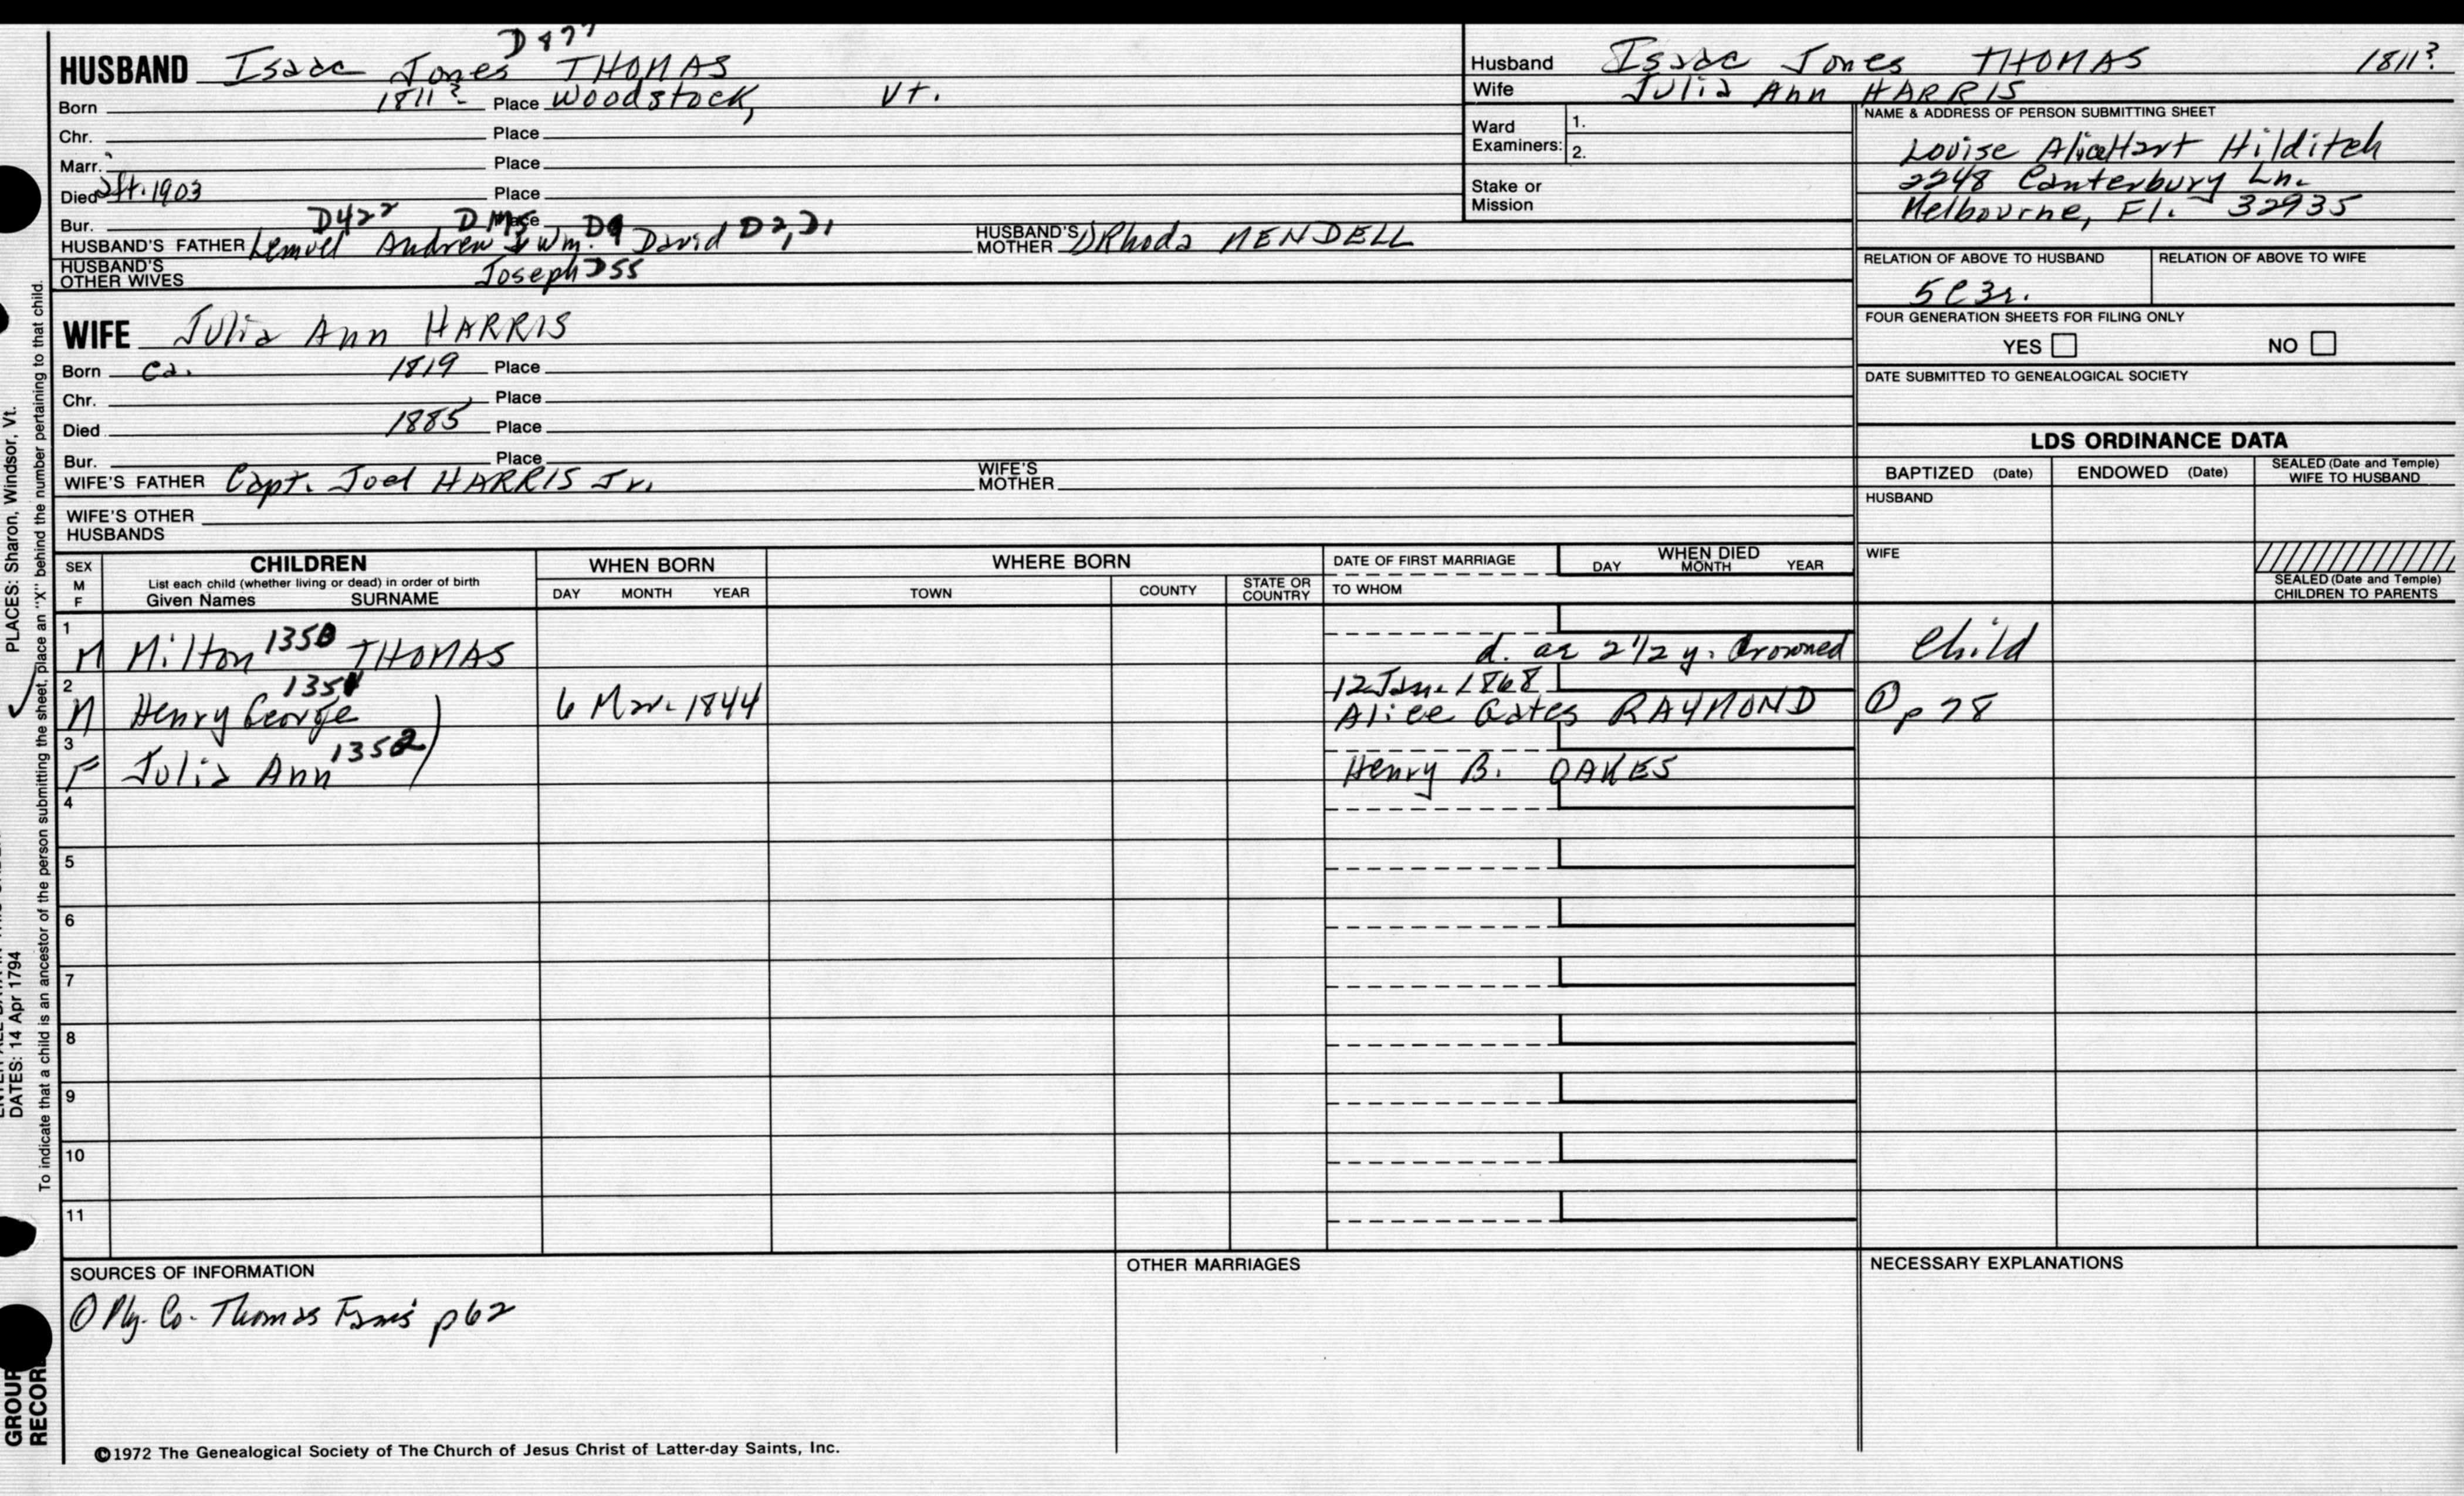 D 477
HUSBAND Isaac Jones THOMAS
Born 1811? Place Woodstock, Vt.
Chr. Place
Marr. Place
Died aft. 1903 Place
Bur. Place
D422 DM5 D9 D2, D1
HUSBAND'S FATHER Lemuel Andrew Wm. David HUSBAND'S MOTHER Rhoda MENDELL
HUSBAND'S OTHER WIVES Joseph D55
WIFE Julia Ann HARRIS
Born Ca. 1819 Place
Chr. Place
Died 1885 Place
Bur. Place
WIFE'S FATHER Capt. Joel HARRIS Jr. WIFE'S MOTHER
WIFE'S OTHER
HUSBANDS
Husband Isaac Jones THOMAS 1811?
Wife Julia Ann HARRIS
Ward Examiners: 1.
2.
Stake or
Mission
NAME & ADDRESS OF PERSON SUBMITTING SHEET
Louise Alice Hart Hilditch
2248 Canterbury Ln.
Melbourne, Fl. 32935
RELATION OF ABOVE TO HUSBAND RELATION OF ABOVE TO WIFE
5C3r.
FOUR GENERATION SHEETS FOR FILING ONLY
YES NO
DATE SUBMITTED TO GENEALOGICAL SOCIETY
LDS ORDINANCE DATA
BAPTIZED (Date) ENDOWED (Date) SEALED (Date and Temple) WIFE TO HUSBAND
HUSBAND
WIFE
SEALED (Date and Temple)
CHILDREN TO PARENTS
SEX M F CHILDREN WHEN BORN WHERE BORN DATE OF FIRST MARRIAGE WHEN DIED
List each child (whether living or dead) in order of birth DAY MONTH YEAR
Given Names SURNAME DAY MONTH YEAR TOWN COUNTY STATE OR COUNTRY TO WHOM
1
M Milton 1350 THOMAS d. ae 2 1/2 y. drowned Child
2 1351 12 Jan. 1868
M Henry George 6 Mar. 1844 Alice Gates RAYMOND ① p 78
3 1352
F Julia Ann Henry B. OAKES
4
5
6
7
8
9
10
11
SOURCES OF INFORMATION
① Ply. Co. Thomas Fams p62
OTHER MARRIAGES
NECESSARY EXPLANATIONS
©1972 The Genealogical Society of The Church of Jesus Christ of Latter-day Saints, Inc.
PLACES: Sharon, Windsor, Vt.
DATES: 14 Apr 1794
To indicate that a child is an ancestor of the person submitting the sheet, place an "X" behind the number pertaining to that child.
GROUP
RECOR